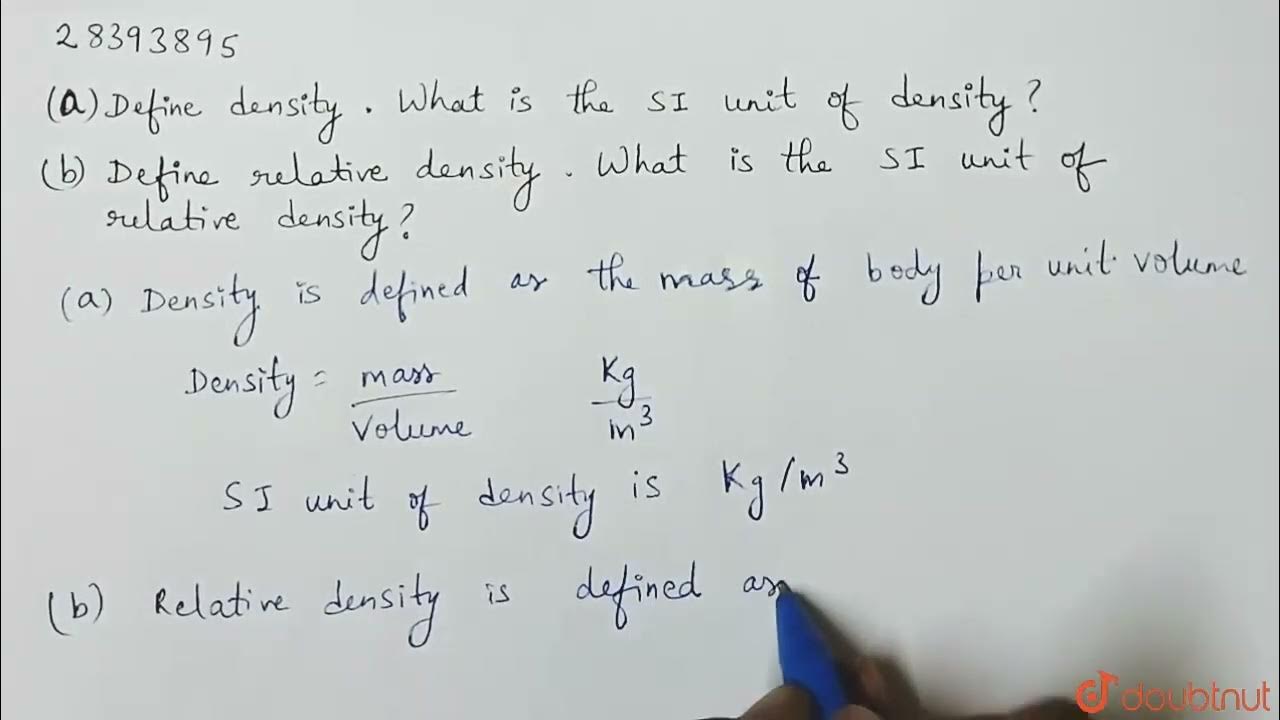 28393895
(a) Define density. What is the SI unit of density?
(b) Define relative density. What is the SI unit of
relative density?
(a) Density is defined as the mass of body per unit volume
Density = mass/Volume Kg/m³
SI unit of density is Kg/m³
(b) Relative density is defined as
doubtnut